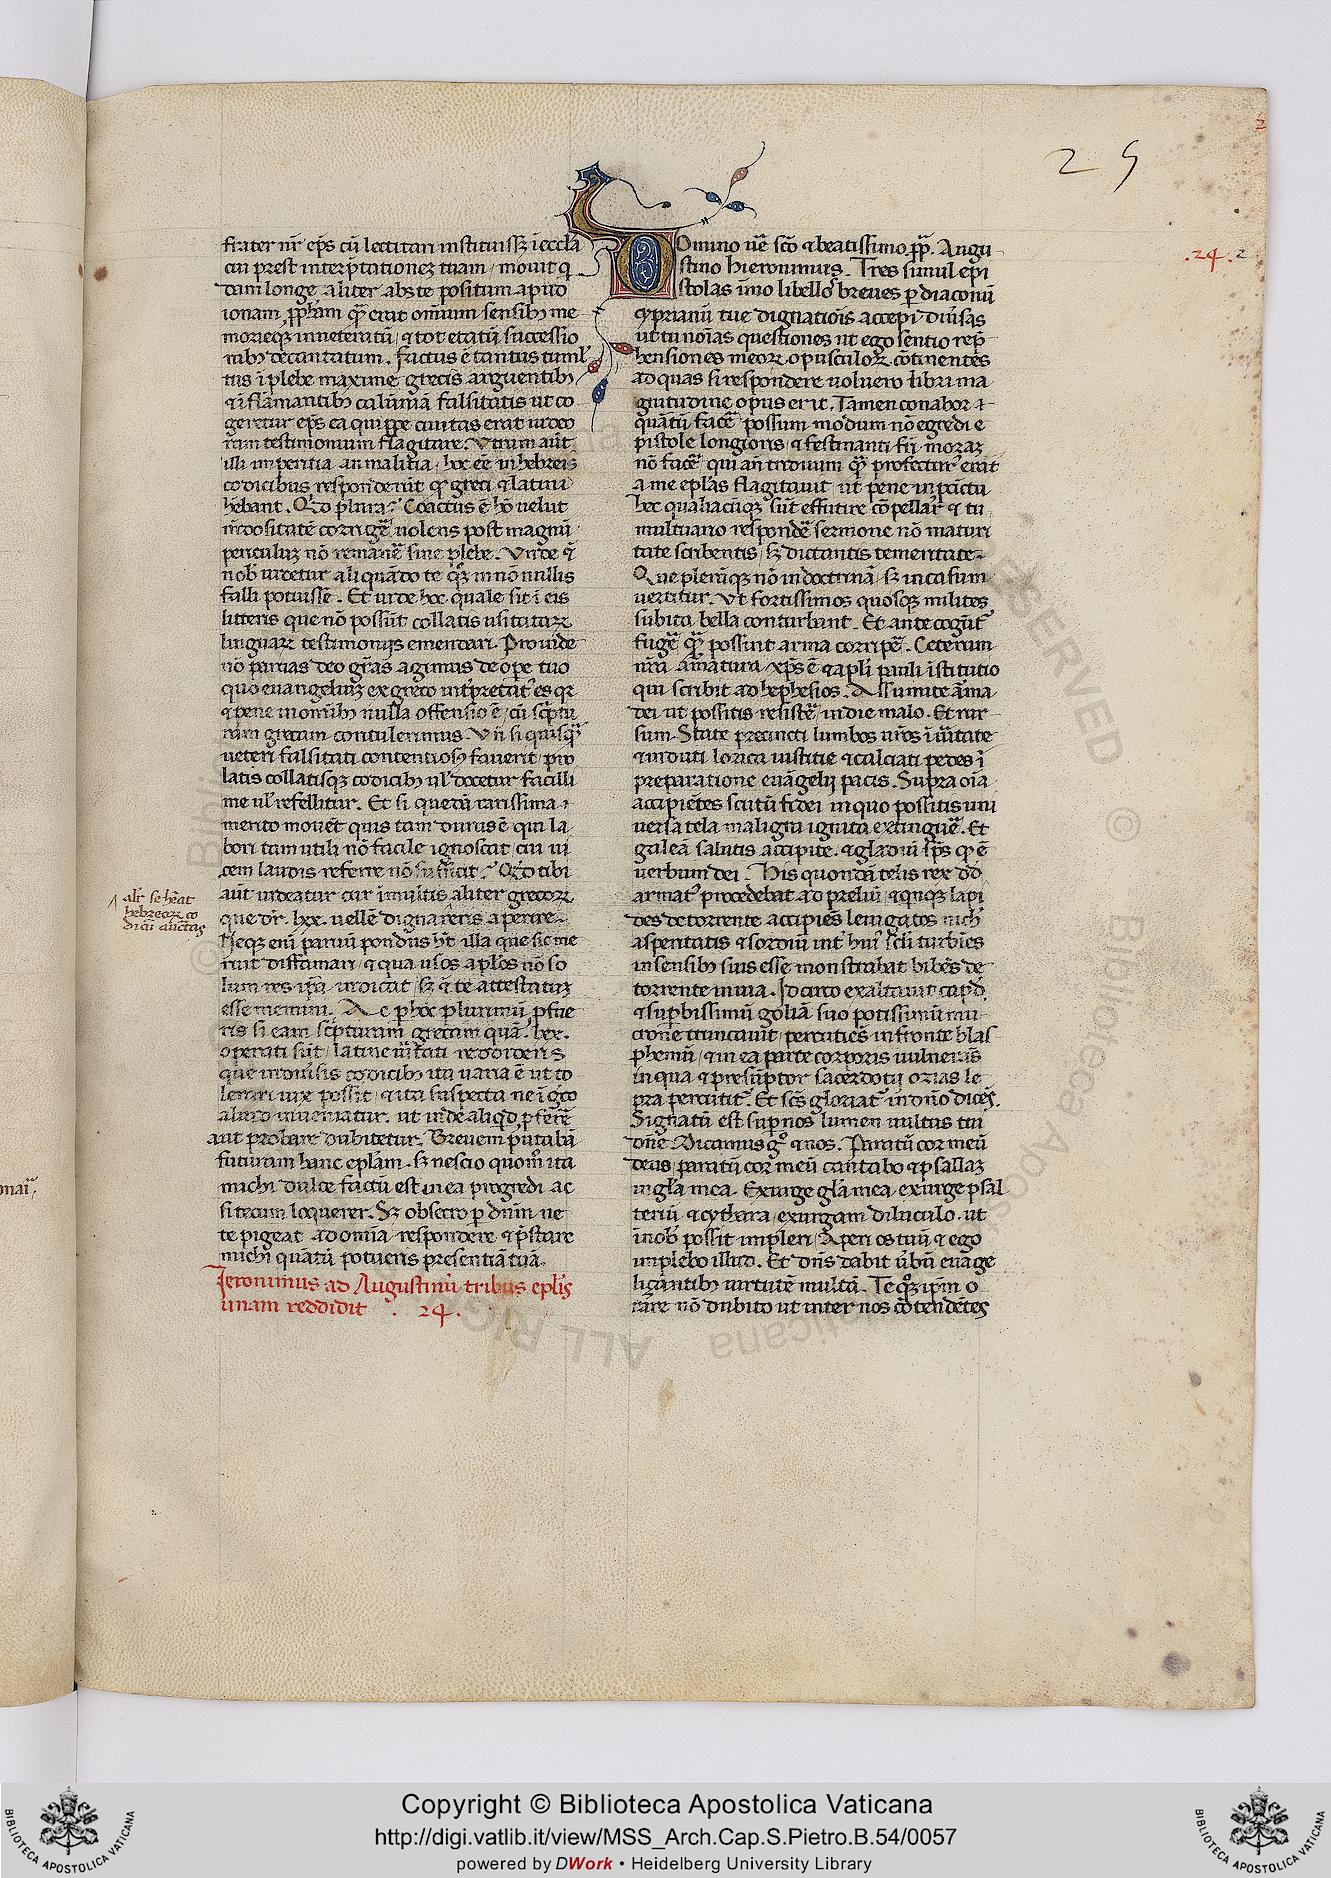 25
.24. 2
frater nr̄ ep̄s cū lectitari instituiss; ī eccl̄a
cui prest interp̄tationeʒ tuam / mouit q
dam longe aliter abs te positum apud
ionam, ꝓph̄am qͣ̄ erat omīum sensibꝰ me
morieqꝫ inueteratū, ⁊ tot etatū successio
nibꝰ decantatum. Factus ē tantus tuml̄
tus ī plebe maxime grecis arguentibꝰ
⁊ īflamantibꝰ calūmiā falsitatis ut co
geretur ep̄s ea quippe ciuitas erat iudeo
rum testimonium flagitare. Vtrum aūt
illi imperitia an malitia, hoc ēē in hebreis
codicibus responderūt qꝰ greci ⁊ latini
hēbant. Qͦd plura? Coactus ē hō uelut
mēdositatē corrigē̄ uolens post magnū
periculuʒ nō remanē̄ sine plebe. Vnde ⁊
nob̄ uidetur aliquādo te qͦqꝫ in nō nullis
falli potuissē. Et uide hoc quale sit ī eis
litteris que nō possūt collatis usitataꝝ
linguaꝝ testimonijs emendari. Proinde
nō paruas deo gr̄as agimus de ope tuo
quo euangeliuʒ ex greco int̄pretatꝰ es qꝛ
⁊ pene in omībꝰ nulla offensio ē, cū sc̄ptu
ram grecam contulerimus. Vn̄ si quisqͣ̄
ueteri falsitati contentiosꝰ fauerit, pro
latis collatisqꝫ codicibꝰ ul̄ docetur facilli
me ul̄ refellitur. Et si quedā rarissima ⁊
merito mouēt quis tam durus ē qui la
bori tam utili nō facile ignoscat, cui ui
cem laudis referre nō sufficit? Qͦd tibi
aūt uideatur cur ī multis aliter grecoꝝ
que dr̄. lxx. uellē dignareris aperire.
Neqꝫ enī paruū pondus hēt illa que sic me
ruit diffamari, ⁊ qua usos apl̄os nō so
lum res ip̄a indicat, sʒ ⁊ te attestatuʒ
esse memini. Ac ꝑ hoc plurimū ꝓfue
ris si eam sc̄pturam grecam quā. lxx.
operati sūt, latine uītati reddideris
que in diūsis codicibꝰ ita uaria ē ut to
lerari uix possit, ⁊ ita suspecta ne ī gͦco
aliud inueniatur. ut inde aliqͦd ꝓferē
aut probare dubitetur. Breuem putabā
futuram hanc epl̄am. sʒ nescio quomͦ ita
michi dulce factū est in ea progredi ac
si tecum loquerer. Sʒ obsecro ꝑ dnm ne
te pigeat ad omīa respondere ⁊ p̄stare
michi quātū potueris presentiā tuā.
Jeronimus ad Augustinū tribus epl̄is
unam reddidit . 24.
alr̄ se hēat
hebreoꝝ co
dicū auctoritas
Domino ue͞ sc̄o ⁊ beatissimo pp̄. Augu
stino Hieronimus. Tres simul epi
stolas īmo libelloˢ breues ꝑ diaconū
cyprianū tue dignatiōis accepi diūsas
ut tu noīas questiones ut ego sentio rep̄
hensiones meoꝝ opusculoꝝ cōtinentes
ad quas si respondere uoluero libri ma
gnitudine opus erit. Tamen conabor ⁊
quātū facē possum modum nō egredi e
pistole longioris, ⁊ festinanti frī moraʒ
nō facē, qui an̄ triduum qͣ̄ profectur̄ erat
a me epl̄as flagitauit, ut pene in pūctu
hec qualiacūqꝫ sūt effutire cōpellar ⁊ tu
multuario respondē sermone nō maturi
tate scribentis, sʒ dictantis temeritate.
Que plerūqꝫ nō in doctrinā, sʒ in casum
uertitur. Vt fortissimos quosqꝫ milites
subita bella conturbant. Et ante cogūt̄
fugē qͣ̄ possint arma corripē. Ceterum
nr̄a armatura xp̄s ē ⁊ apl̄i pauli īstitutio
qui scribit ad hephesios. Assumite arma
dei ut possitis resistē in die malo. Et rur
sum. State precincti lumbos ur̄os ī uitate
⁊ induti lorica iustitie ⁊ calciati pedes ī
preparatione euāgelij pacis. Supra oīa
accipiētes scutū fidei in quo possitis uni
uersa tela maligni ignita extinguē. Et
galeā salutis accipite. ⁊ gladiū sp̄s qꝰ ē
uerbum dei. His quondā telis rex dd̄
armatꝰ procedebat ad preliū, ⁊ qnqꝫ lapi
des de torrente accipiēs leuigatos nich̄
asperitatis ⁊ sordiū int̄ huiꝰ sc̄li turbies
in sensibꝰ suis esse monstrabat bibēs de
torrente in uia. Idcirco exaltauit caput
⁊ supbissimū goliā suo potissimū mu
crone truncauit, percutiēs in fronte blas
phemū, ⁊ in ea parte corporis uulnerās
in qua ⁊ presūptor sacerdotij ozias le
pra percutit̄. Et sc̄s gloriat̄ in dn̄o dicēs.
Signatū est suꝑ nos lumen uultus tui
dn̄e. Dicamus gͦ ⁊ nos. Paratū cor meū
deus, paratū cor meū cantabo ⁊ psallaʒ
in gl̄a mea. Exurge gl̄a mea, exurge psal
teriū ⁊ cythara, exurgam diluculo. ut
in nob̄ possit impleri. Aperi os tuū ⁊ ego
implebo illud. Et dn̄s dabit ūbū euāge
liçātibꝰ uirtutē multā. Te qͦqꝫ ip̄m o
rare nō dubito ut inter nos cōtendētes
Copyright © Biblioteca Apostolica Vaticana
http://digi.vatlib.it/view/MSS_Arch.Cap.S.Pietro.B.54/0057
powered by DWork • Heidelberg University Library
BIBLIOTECA APOSTOLICA VATICANA
BIBLIOTECA APOSTOLICA VATICANA